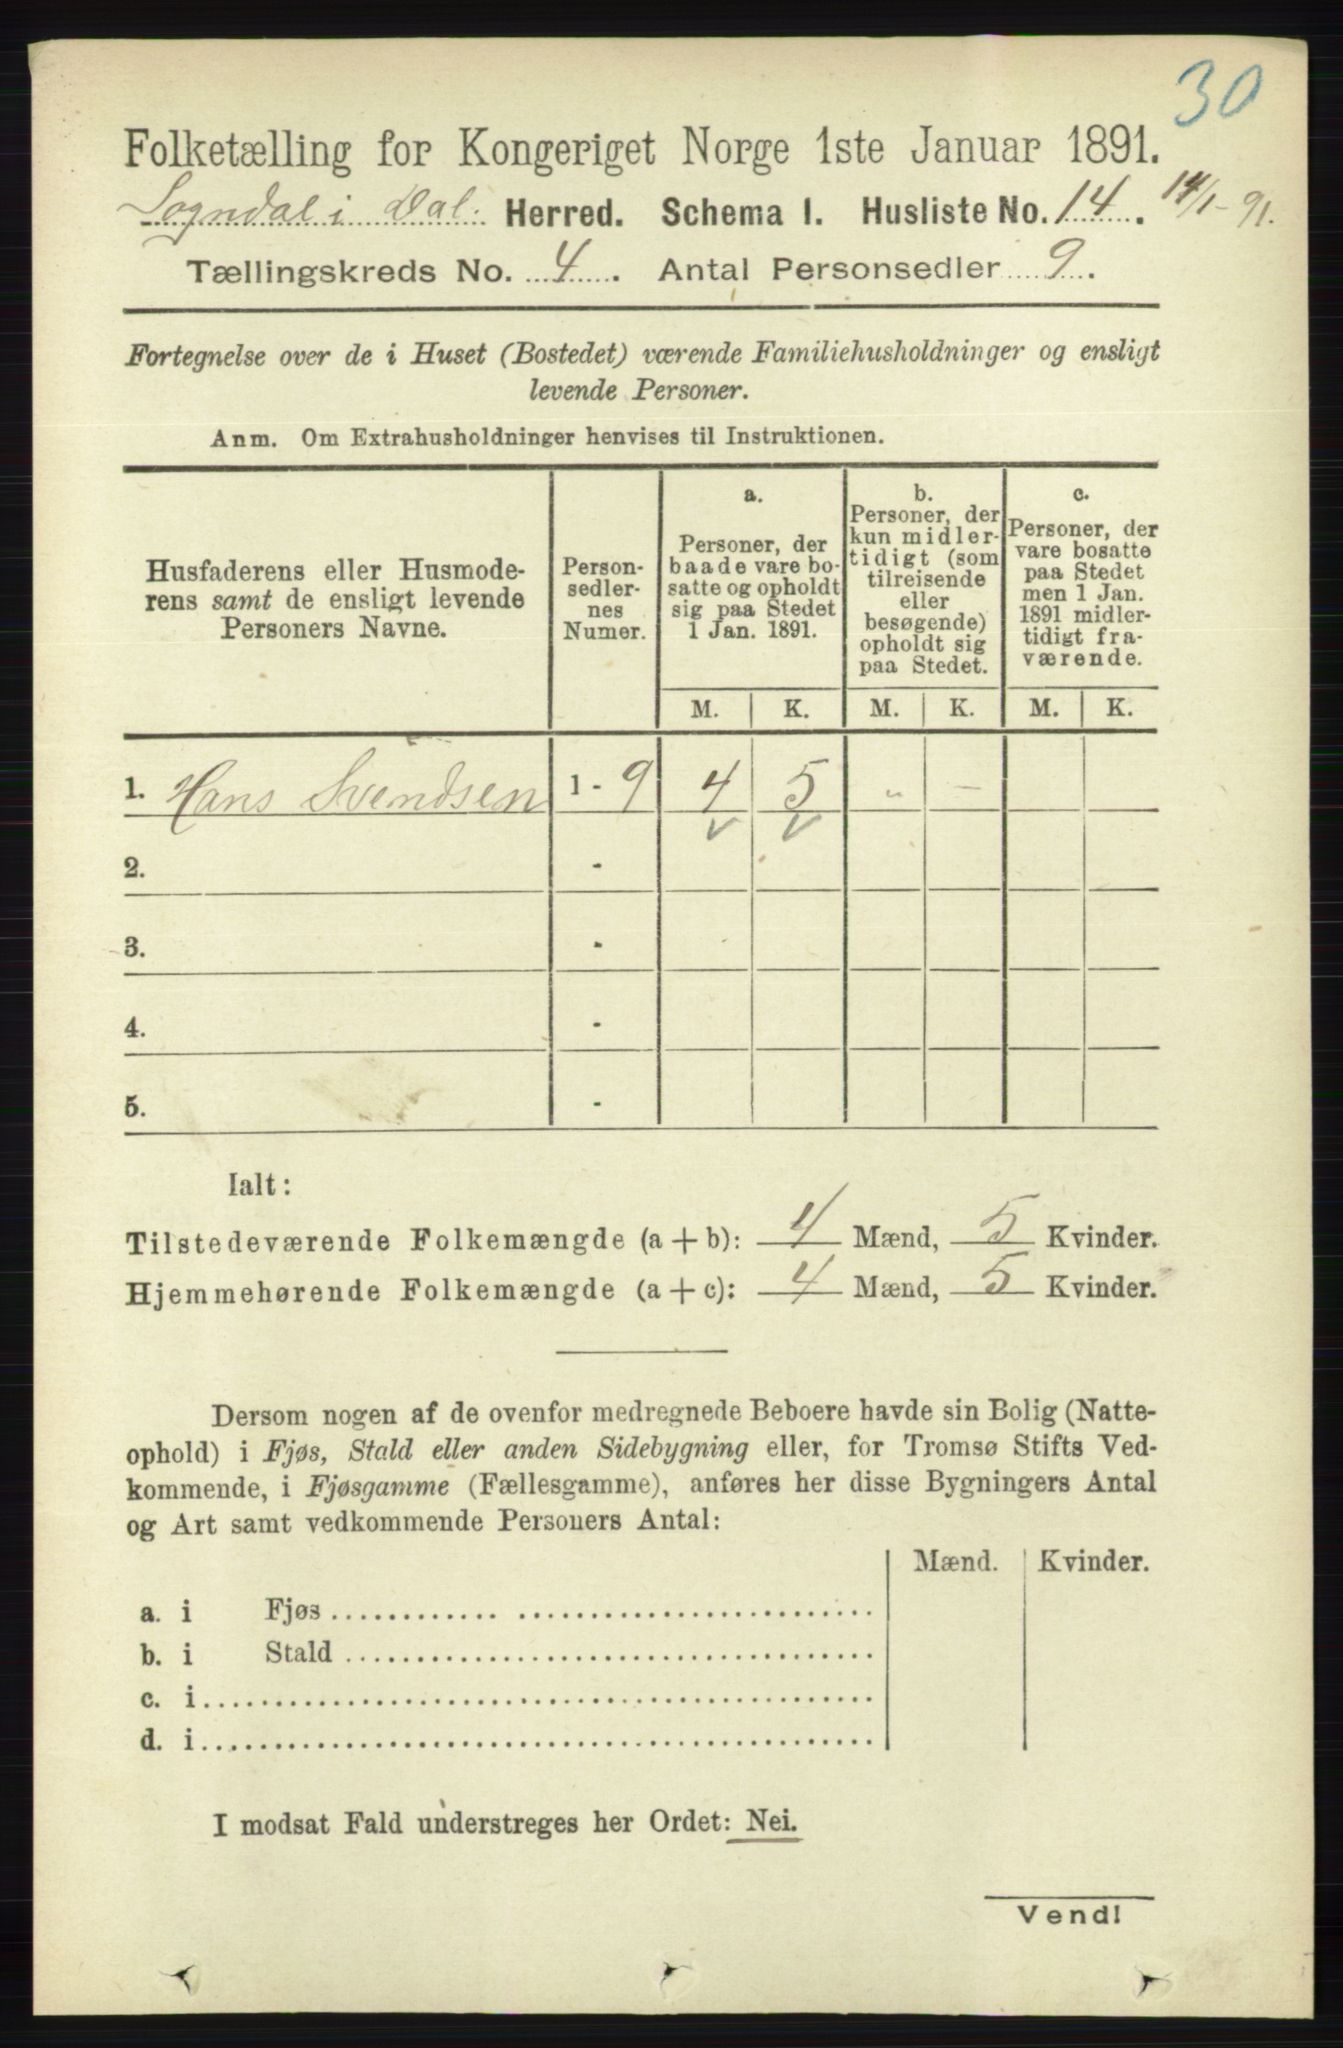 30
Folketælling for Kongeriget Norge 1ste Januar 1891.
Sogndal i Dal. Herred. Schema I. Husliste No. 14. 14/1-91.
Tællingskreds No. 4. Antal Personsedler 9.
Fortegnelse over de i Huset (Bostedet) værende Familiehusholdninger og ensligt
levende Personer.
Anm. Om Extrahusholdninger henvises til Instruktionen.
Husfaderens eller Husmode-
rens samt de ensligt levende
Personers Navne.
Person-
sedler-
nes
Numer.
a.
Personer, der
baade vare bo-
satte og opholdt
sig paa Stedet
1 Jan. 1891.
b.
Personer, der
kun midler-
tidigt (som
tilreisende
eller
besøgende)
opholdt sig
paa Stedet.
c.
Personer, der
vare bosatte
paa Stedet
men 1 Jan.
1891 midler-
tidigt fra-
værende.
M. K. M. K. M. K.
1. Hans Svendsen 1 - 9 4 5 „ -
2. -
3. -
4. -
5. -
Ialt:
Tilstedeværende Folkemængde (a + b): 4 Mænd, 5 Kvinder.
Hjemmehørende Folkemængde (a + c): 4 Mænd, 5 Kvinder.
Dersom nogen af de ovenfor medregnede Beboere havde sin Bolig (Natte-
ophold) i Fjøs, Stald eller anden Sidebygning eller, for Tromsø Stifts Ved-
kommende, i Fjøsgamme (Fællesgamme), anføres her disse Bygningers Antal
og Art samt vedkommende Personers Antal:
Mænd. Kvinder.
a. i Fjøs
b. i Stald
c. i
d. i
I modsat Fald understreges her Ordet: Nei.
Vend!